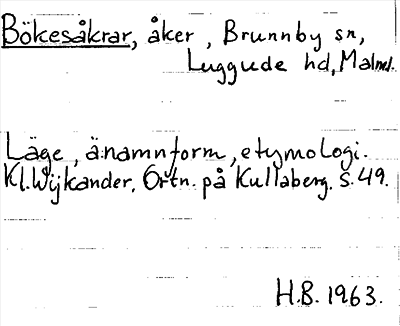 Bökesåkrar, åker, Brunnby sn,
Luggude hd, Malml.
Läge, ä.namnform, etymologi.
Kl. Wijkander, Ortn. på Kullaberg. S. 49.
H.B. 1963.